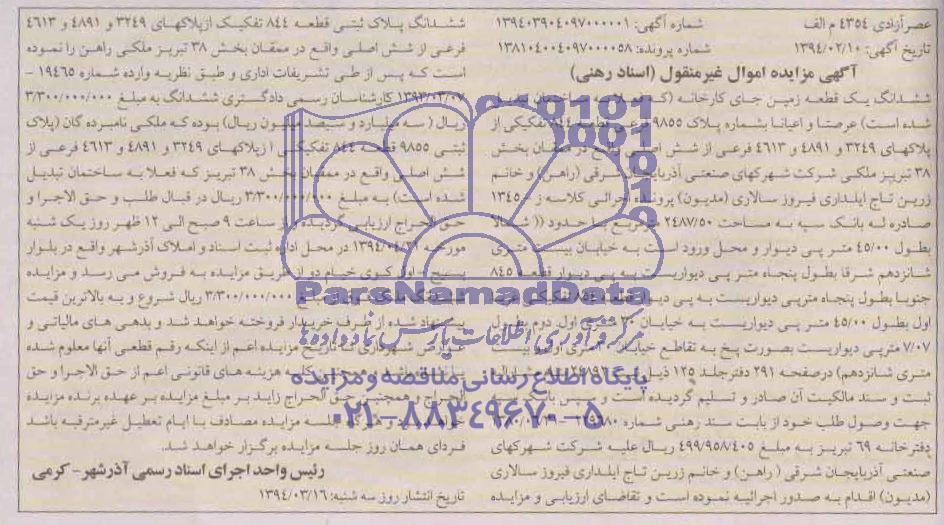 عصر آزادی ٤٣٥٤ م الف شماره آگهی: ١٣٩٤٠٣٩٠٤٠٩٧٠٠٠٠٠١
تاریخ آگهی: ١٣٩٤/٠٢/١٠ شماره پرونده: ١٣٨١٠٤٠٠٤٠٩٧٠٠٠٠٥٨
آگهی مزایده اموال غیرمنقول (اسناد رهنی)
ششدانگ یک قطعه زمین جای کارخانه
شده است) عرصتا و اعیانا بشماره پلاک ٩٨٥٥ فرعی تفکیکی از
پلاکهای ٣٢٤٩ و ٤٨٩١ و ٤٦١٣ فرعی از شش اصلی واقع در ممقان بخش
٣٨ تبریز ملکی شرکت شهرکهای صنعتی آذربایجان شرقی (راهن) و خانم
زرین تاج ایلداری فیروز سالاری (مدیون) پرونده اجرائی کلاسه ز ١٣٤٥
صادره له بانک سپه به مساحت ٢٤٨٧/٥٠ مترمربع با حدود (( شمالا
بطول ٤٥/٠٠ متر پی دیوار و محل ورود است به خیابان بیست متری
شانزدهم شرقا بطول پنجاه متر پی دیواریست به پی دیوار قطعه ٨٤٥
جنوبا بطول پنجاه مترپی دیواریست به پی دیوار قطعه تفکیکی غربا
اول بطول ٤٥/٠٠ متر پی دیواریست به خیابان ٢٠ متری اول دوم بطول
٧/٠٧ مترپی دیواریست بصورت پخ به تقاطع خیابان متری اول و بیست
متری شانزدهم) درصفحه ٢٩١ دفترجلد ١٢٥ ذیل
ثبت و سند مالکیت آن صادر و تسلیم گردیده است و سپس بانک سپه
جهت وصول طلب خود از بابت سند رهنی شماره
دفترخانه ٦٩ تبریز به مبلغ ٤٩٩/٩٥٨/٤٠٥ ریال علیه شرکت شهرکهای
صنعتی آذربایجان شرقی ( راهن) و خانم زرین تاج ایلداری فیروز سالاری
(مدیون) اقدام به صدور اجرائیه نموده است و تقاضای ارزیابی و مزایده
ششدانگ پلاک ثبتی قطعه ٨٤٤ تفکیک ازپلاکهای ٣٢٤٩ و ٤٨٩١ و ٤٦١٣
فرعی از شش اصلی واقع در ممقان بخش ٣٨ تبریز ملکی راهن را نموده
است که پس از طی تشریفات اداری و طبق نظریه وارده شماره ١٩٤٦٥ –
١٣٩٣/٠٣/٠٧ کارشناسان رسمی دادگستری ششدانگ به مبلغ ٣/٣٠٠/٠٠٠/٠٠٠
ریال ( سه میلیارد و سیصد میلیون ریال) بوده که ملکی نامبرده گان (پلاک
ثبتی ٩٨٥٥ قطعه ٨٤٤ تفکیکی ازپلاکهای ٣٢٤٩ و ٤٨٩١ و ٤٦١٣ فرعی از
شش اصلی واقع در ممقان بخش ٣٨ تبریز که فعلا به ساختمان تبدیل
شده است) به مبلغ ٣/٣٠٠/٠٠٠/٠٠٠ ریال در قبال طلب و حق الاجرا و
حق الحراج ارزیابی گردیده و از ساعت ٩ صبح الی ١٢ ظهر روز یک شنبه
مورخه ١٣٩٤/٠٤/٢١ در محل اداره ثبت اسناد و املاک آذرشهر واقع در بلوار
بسیج - اول کوی خیام دو از طریق مزایده به فروش می رسد و مزایده
ششدانگ ملک فوق از مبلغ ٣/٣٠٠/٠٠٠/٠٠٠ ریال شروع و به بالاترین قیمت
پیشنهاد شده از طرف خریدار فروخته خواهد شد و بدهی های مالیاتی و
عوارض شهرداری تا تاریخ مزایده اعم از اینکه رقم قطعی آنها معلوم شده
یا نشده باشد و همچنین کلیه هزینه های قانونی اعم از حق الاجرا و حق
الحراج و همچنین حق الحراج زاید بر مبلغ مزایده بر عهده برنده مزایده
خواهد بود و هرگاه جلسه مزایده مصادف با ایام تعطیل غیرمترقبه باشد
فردای همان روز جلسه مزایده برگزار خواهد شد.
رئیس واحد اجرای اسناد رسمی آذرشهر- کرمی
تاریخ انتشار روز سه شنبه: ١٣٩٤/٠٣/١٦
ParsNamadData
مرکز فرآوری اطلاعات پارس نماد داده ها
پایگاه اطلاع رسانی مناقصه و مزایده
۰۲۱-۸۸۳۴۹۶۷۰-۵